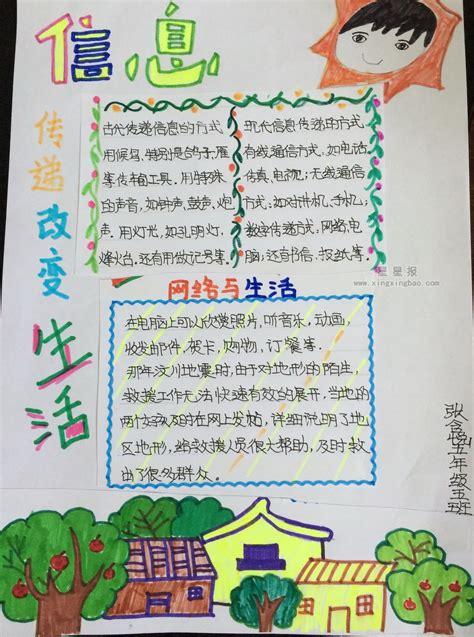 信息
传递改变
生活
古代传递信息的方式
用候鸟,特别是鸽子,雁
等传书工具.用特殊
白声音,如钟声、鼓声、炮
声.用灯光,如孔明灯、
烽火台,还有用做记号等.
现代信息传递的方式
有线通信方式,如电话,
传真、电视;无线通信
方式,如对讲机,手机,
数字传递方式,网络,电
脑;还有书信,报纸等.
星星报
www.xingxingbao.com
网络与生活
在电脑上可以欣赏照片,听音乐,动画,
收发邮件,贺卡,购物,订餐等.
那年汶川地震时,由于对地形的陌生
救援工作无法快速有效的展开.当地的
两女孩及时在网上发帖,详细说明了地
区地形,给救援人员很大帮助,及时救
出了很多群众.
张
五年级五班